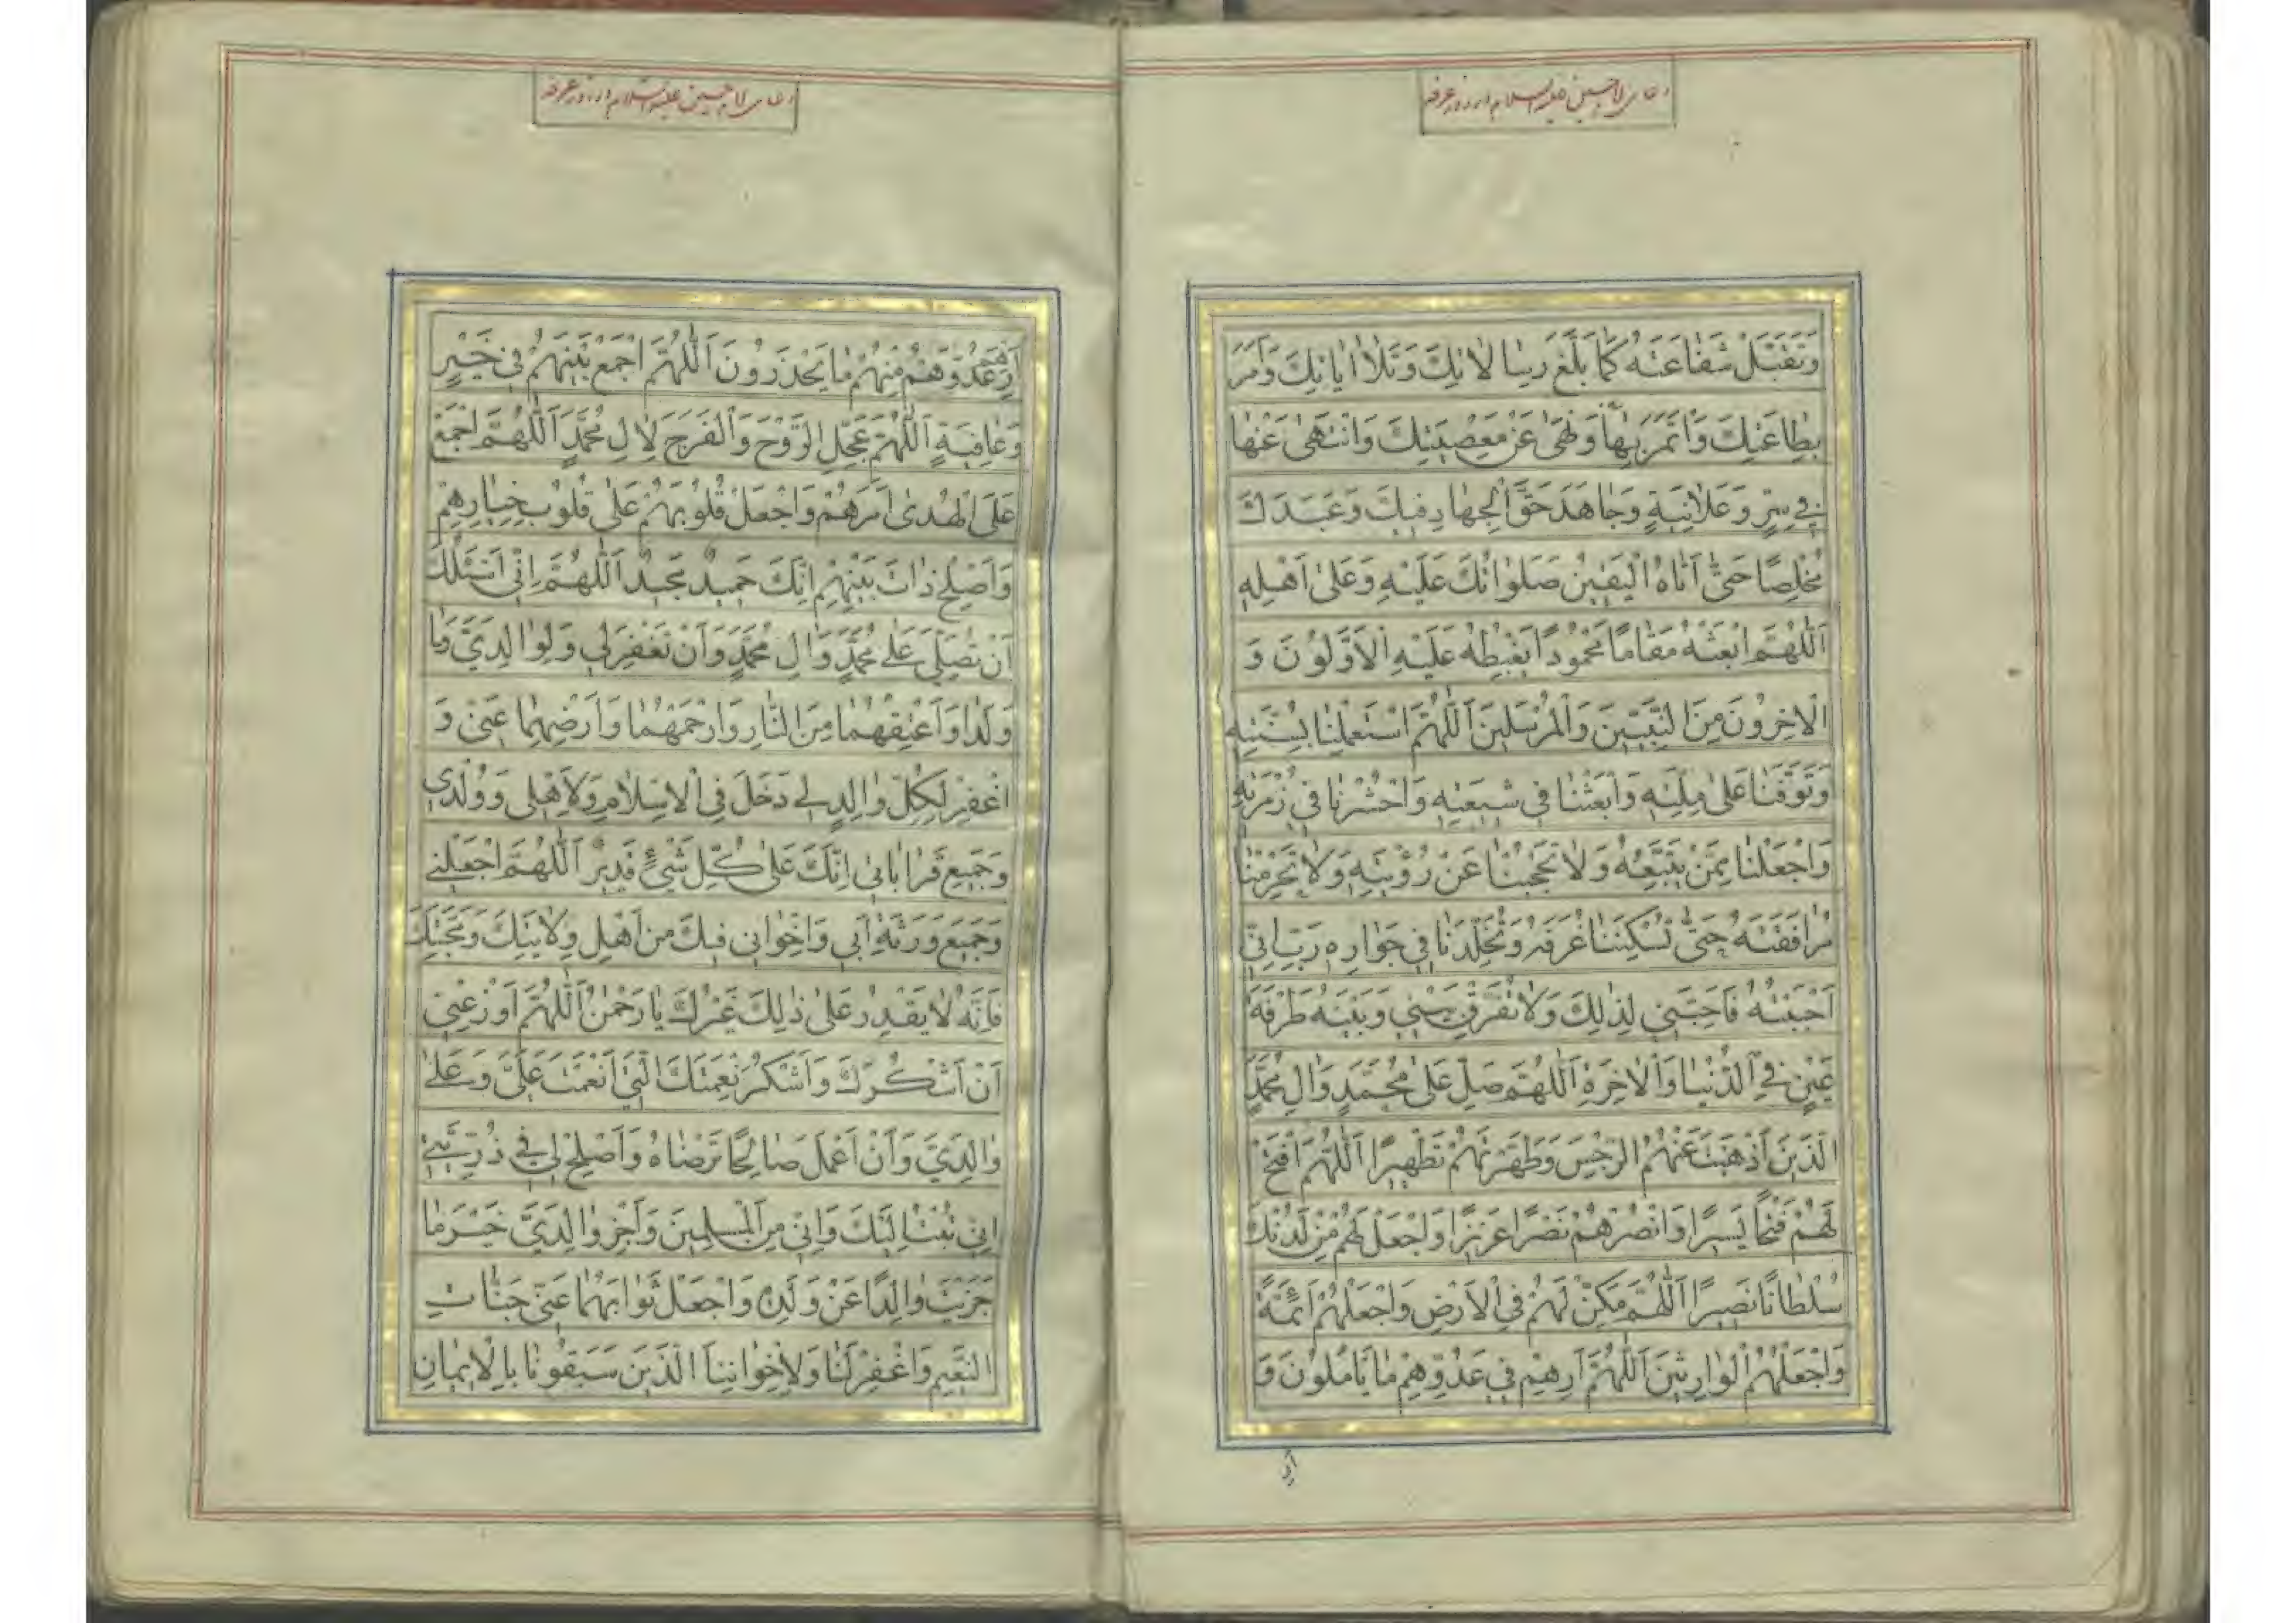 دعای لا حسین علیه السلام در روز عرفه
وَتَقَبَّلْ شَفٰاعَتَهُ كَمٰا بَلَّغَ رِسٰالاٰتِكَ وَتَلاٰ اٰيٰاتِكَ وَاَمَرَ
بِطٰاعَتِكَ وَأْتَمَرَ بِهٰا وَنَهىٰ عَنْ مَعْصِيَتِكَ وَانْتَهىٰ عَنْهٰا
في سِرٍّ وَعَلاٰنِيَةٍ وَجٰاهَدَ حَقَّ الْجِهٰادِ فيكَ وَعَبَدَكَ
مُخْلِصًا حَتّٰى اَتٰاهُ الْيَقينُ صَلَوٰاتُكَ عَلَيْهِ وَعَلىٰ اَهْلِهِ
اَللّٰهُمَّ ابْعَثْهُ مَقٰامًا مَحْمُودًا يَغْبِطُهُ عَلَيْهِ الْاَوَّلُونَ وَ
الْاٰخِرُونَ مِنَ النَّبِيّينَ وَالْمُرْسَلينَ اَللّٰهُمَّ اسْتَعْمِلْنٰا بِسُنَّتِهِ
وَتَوَفَّنٰا عَلىٰ مِلَّتِهِ وَابْعَثْنٰا في شيعَتِهِ وَاحْشُرْنٰا في زُمْرَتِهِ
وَاجْعَلْنٰا مِمَّنْ يَتَّبِعُهُ وَلاٰ تَحْجُبْنٰا عَنْ رُؤْيَتِهِ وَلاٰ تَحْرِمْنٰا
مُرٰافَقَتَهُ حَتّٰى تُسْكِنَنٰا غُرَفَهُ وَتُخَلِّدَنٰا في جَوٰارِهِ رَبِّ اِنّي
اَحْبَبْتُهُ فَاَحِبَّني لِذٰلِكَ وَلاٰ تُفَرِّقْ بَيْني وَبَيْنَهُ طَرْفَةَ
عَيْنٍ فِي الدُّنْيٰا وَالْاٰخِرَةِ اَللّٰهُمَّ صَلِّ عَلىٰ مُحَمَّدٍ وَاٰلِ مُحَمَّدٍ
الَّذينَ اَذْهَبْتَ عَنْهُمُ الرِّجْسَ وَطَهَّرْتَهُمْ تَطْهيرًا اَللّٰهُمَّ افْتَحْ
لَهُمْ فَتْحًا يَسيرًا وَانْصُرْهُمْ نَصْرًا عَزيزًا وَاجْعَلْ لَهُمْ مِنْ لَدُنْكَ
سُلْطٰانًا نَصيرًا اَللّٰهُمَّ مَكِّنْ لَهُمْ فِي الْاَرْضِ وَاجْعَلْهُمْ اَئِمَّةً
وَاجْعَلْهُمُ الْوٰارِثينَ اَللّٰهُمَّ اَرِهِمْ في عَدُوِّهِمْ مٰا يَأْمُلُونَ وَ
اَرِ
دعای لا حسین علیه السلام در روز عرفه
اَرِ عَدُوَّهُمْ مِنْهُمْ مٰا يَحْذَرُونَ اَللّٰهُمَّ اجْمَعْ بَيْنَهُمْ في خَيْرٍ
وَعٰافِيَةٍ اَللّٰهُمَّ عَجِّلِ الرَّوْحَ وَالْفَرَجَ لِاٰلِ مُحَمَّدٍ اَللّٰهُمَّ اجْمَعْ
عَلَى الْهُدىٰ اَمْرَهُمْ وَاجْعَلْ قُلُوبَهُمْ عَلىٰ قُلُوبِ خِيٰارِهِمْ
وَاَصْلِحْ ذٰاتَ بَيْنِهِمْ اِنَّكَ حَميدٌ مَجيدٌ اَللّٰهُمَّ اِنّي اَسْئَلُكَ
اَنْ تُصَلِّيَ عَلىٰ مُحَمَّدٍ وَاٰلِ مُحَمَّدٍ وَاَنْ تَغْفِرَ لي وَلِوٰالِدَيَّ وَمٰا
وَلَدٰا وَاَعْتِقْهُمٰا مِنَ النّٰارِ وَارْحَمْهُمٰا وَاَرْضِهِمٰا عَنّي وَ
اغْفِرْ لِكُلِّ وٰالِدٍ لي دَخَلَ فِي الْاِسْلاٰمِ وَلِاَهْلي وَوُلْدي
وَجَميعِ قَرٰابٰاتي اِنَّكَ عَلىٰ كُلِّ شَيْءٍ قَديرٌ اَللّٰهُمَّ اجْعَلْني
وَجَميعَ وَرَثَةِ اَبي وَاِخْوٰاني فيكَ مِنْ اَهْلِ وِلاٰيَتِكَ وَمَحَبَّتِكَ
فَاِنَّهُ لاٰ يَقْدِرُ عَلىٰ ذٰلِكَ غَيْرُكَ يٰا رَحْمٰنُ اَللّٰهُمَّ اَوْزِعْني
اَنْ اَشْكُرَكَ وَاَشْكُرَ نِعْمَتَكَ الَّتي اَنْعَمْتَ عَلَيَّ وَعَلىٰ
وٰالِدَيَّ وَاَنْ اَعْمَلَ صٰالِحًا تَرْضٰاهُ وَاَصْلِحْ لي في ذُرِّيَّتي
اِنّي تُبْتُ اِلَيْكَ وَاِنّي مِنَ الْمُسْلِمينَ وَاَجْزِ وٰالِدَيَّ خَيْرَ مٰا
جَزَيْتَ وٰالِدًا عَنْ وَلَدِهِ وَاجْعَلْ ثَوٰابَهُمٰا عَنّي جَنّٰاتِ
النَّعيمِ وَاغْفِرْ لَنٰا وَلِاِخْوٰانِنَا الَّذينَ سَبَقُونٰا بِالْاِيمٰانِ